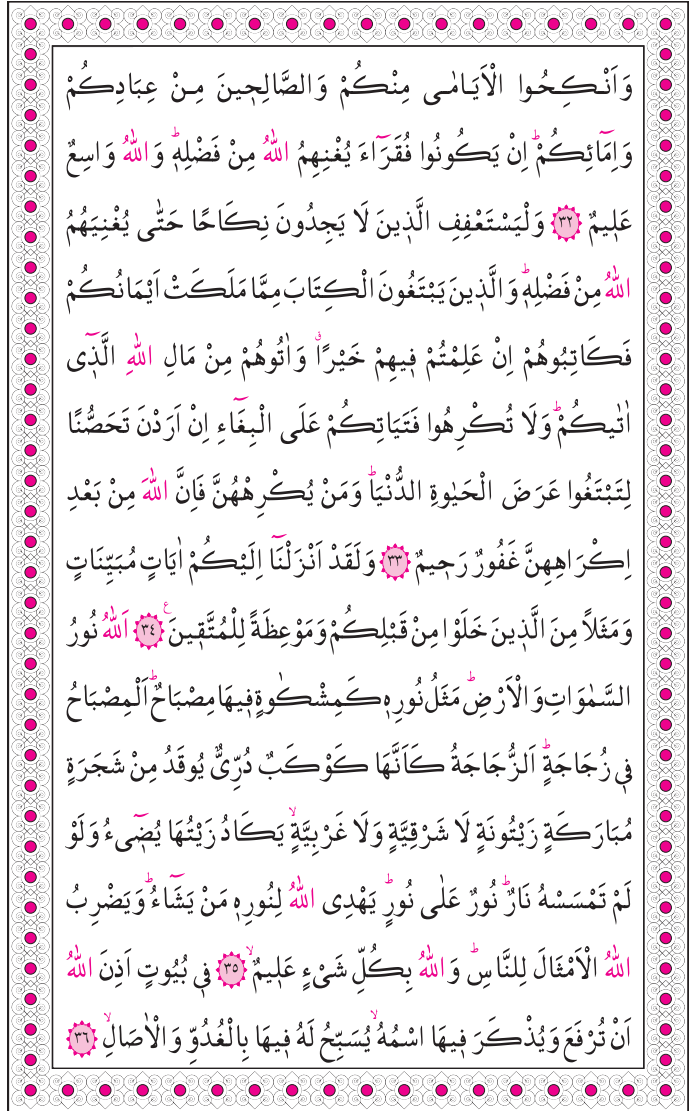 وَاَنْكِحُوا الْاَيَامٰى مِنْكُمْ وَالصَّالِح۪ينَ مِنْ عِبَادِكُمْ
وَاِمَٓائِكُمْۜ اِنْ يَكُونُوا فُقَرَٓاءَ يُغْنِهِمُ اللّٰهُ مِنْ فَضْلِه۪ۜ وَاللّٰهُ وَاسِعٌ
عَل۪يمٌ ﴿٣٢﴾ وَلْيَسْتَعْفِفِ الَّذ۪ينَ لَا يَجِدُونَ نِكَاحًا حَتّٰى يُغْنِيَهُمُ
اللّٰهُ مِنْ فَضْلِه۪ۜ وَالَّذ۪ينَ يَبْتَغُونَ الْكِتَابَ مِمَّا مَلَكَتْ اَيْمَانُكُمْ
فَكَاتِبُوهُمْ اِنْ عَلِمْتُمْ ف۪يهِمْ خَيْرًاۗ وَاٰتُوهُمْ مِنْ مَالِ اللّٰهِ الَّذ۪ٓى
اٰتٰيكُمْۜ وَلَا تُكْرِهُوا فَتَيَاتِكُمْ عَلَى الْبِغَٓاءِ اِنْ اَرَدْنَ تَحَصُّنًا
لِتَبْتَغُوا عَرَضَ الْحَيٰوةِ الدُّنْيَاۜ وَمَنْ يُكْرِهْهُنَّ فَاِنَّ اللّٰهَ مِنْ بَعْدِ
اِكْرَاهِهِنَّ غَفُورٌ رَح۪يمٌ ﴿٣٣﴾ وَلَقَدْ اَنْزَلْنَٓا اِلَيْكُمْ اٰيَاتٍ مُبَيِّنَاتٍ
وَمَثَلًا مِنَ الَّذ۪ينَ خَلَوْا مِنْ قَبْلِكُمْ وَمَوْعِظَةً لِلْمُتَّق۪ينَ۟ ﴿٣٤﴾ اَللّٰهُ نُورُ
السَّمٰوَاتِ وَالْاَرْضِۜ مَثَلُ نُورِه۪ كَمِشْكٰوةٍ ف۪يهَا مِصْبَاحٌۜ اَلْمِصْبَاحُ
ف۪ي زُجَاجَةٍۜ اَلزُّجَاجَةُ كَاَنَّهَا كَوْكَبٌ دُرِّيٌّ يُوقَدُ مِنْ شَجَرَةٍ
مُبَارَكَةٍ زَيْتُونَةٍ لَا شَرْقِيَّةٍ وَلَا غَرْبِيَّةٍۙ يَكَادُ زَيْتُهَا يُض۪ٓيءُ وَلَوْ
لَمْ تَمْسَسْهُ نَارٌۜ نُورٌ عَلٰى نُورٍۜ يَهْدِى اللّٰهُ لِنُورِه۪ مَنْ يَشَٓاءُۜ وَيَضْرِبُ
اللّٰهُ الْاَمْثَالَ لِلنَّاسِۜ وَاللّٰهُ بِكُلِّ شَيْءٍ عَل۪يمٌۙ ﴿٣٥﴾ ف۪ي بُيُوتٍ اَذِنَ اللّٰهُ
اَنْ تُرْفَعَ وَيُذْكَرَ ف۪يهَا اسْمُهُۙ يُسَبِّحُ لَهُ ف۪يهَا بِالْغُدُوِّ وَالْاٰصَالِۙ ﴿٣٦﴾